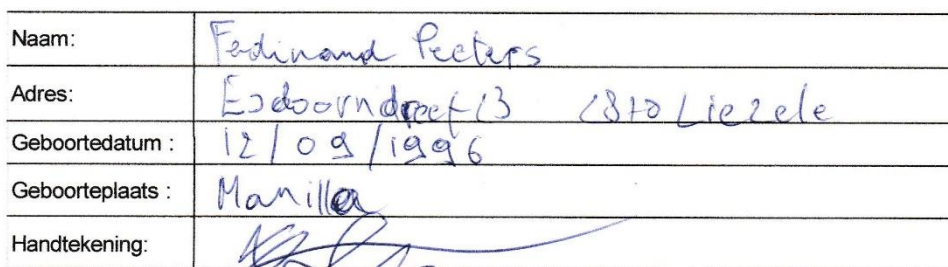 Naam: Ferdinand Peeters
Adres: Esdoorndreef 13 2870 Liezele
Geboortedatum : 12/09/1996
Geboorteplaats : Manilla
Handtekening: